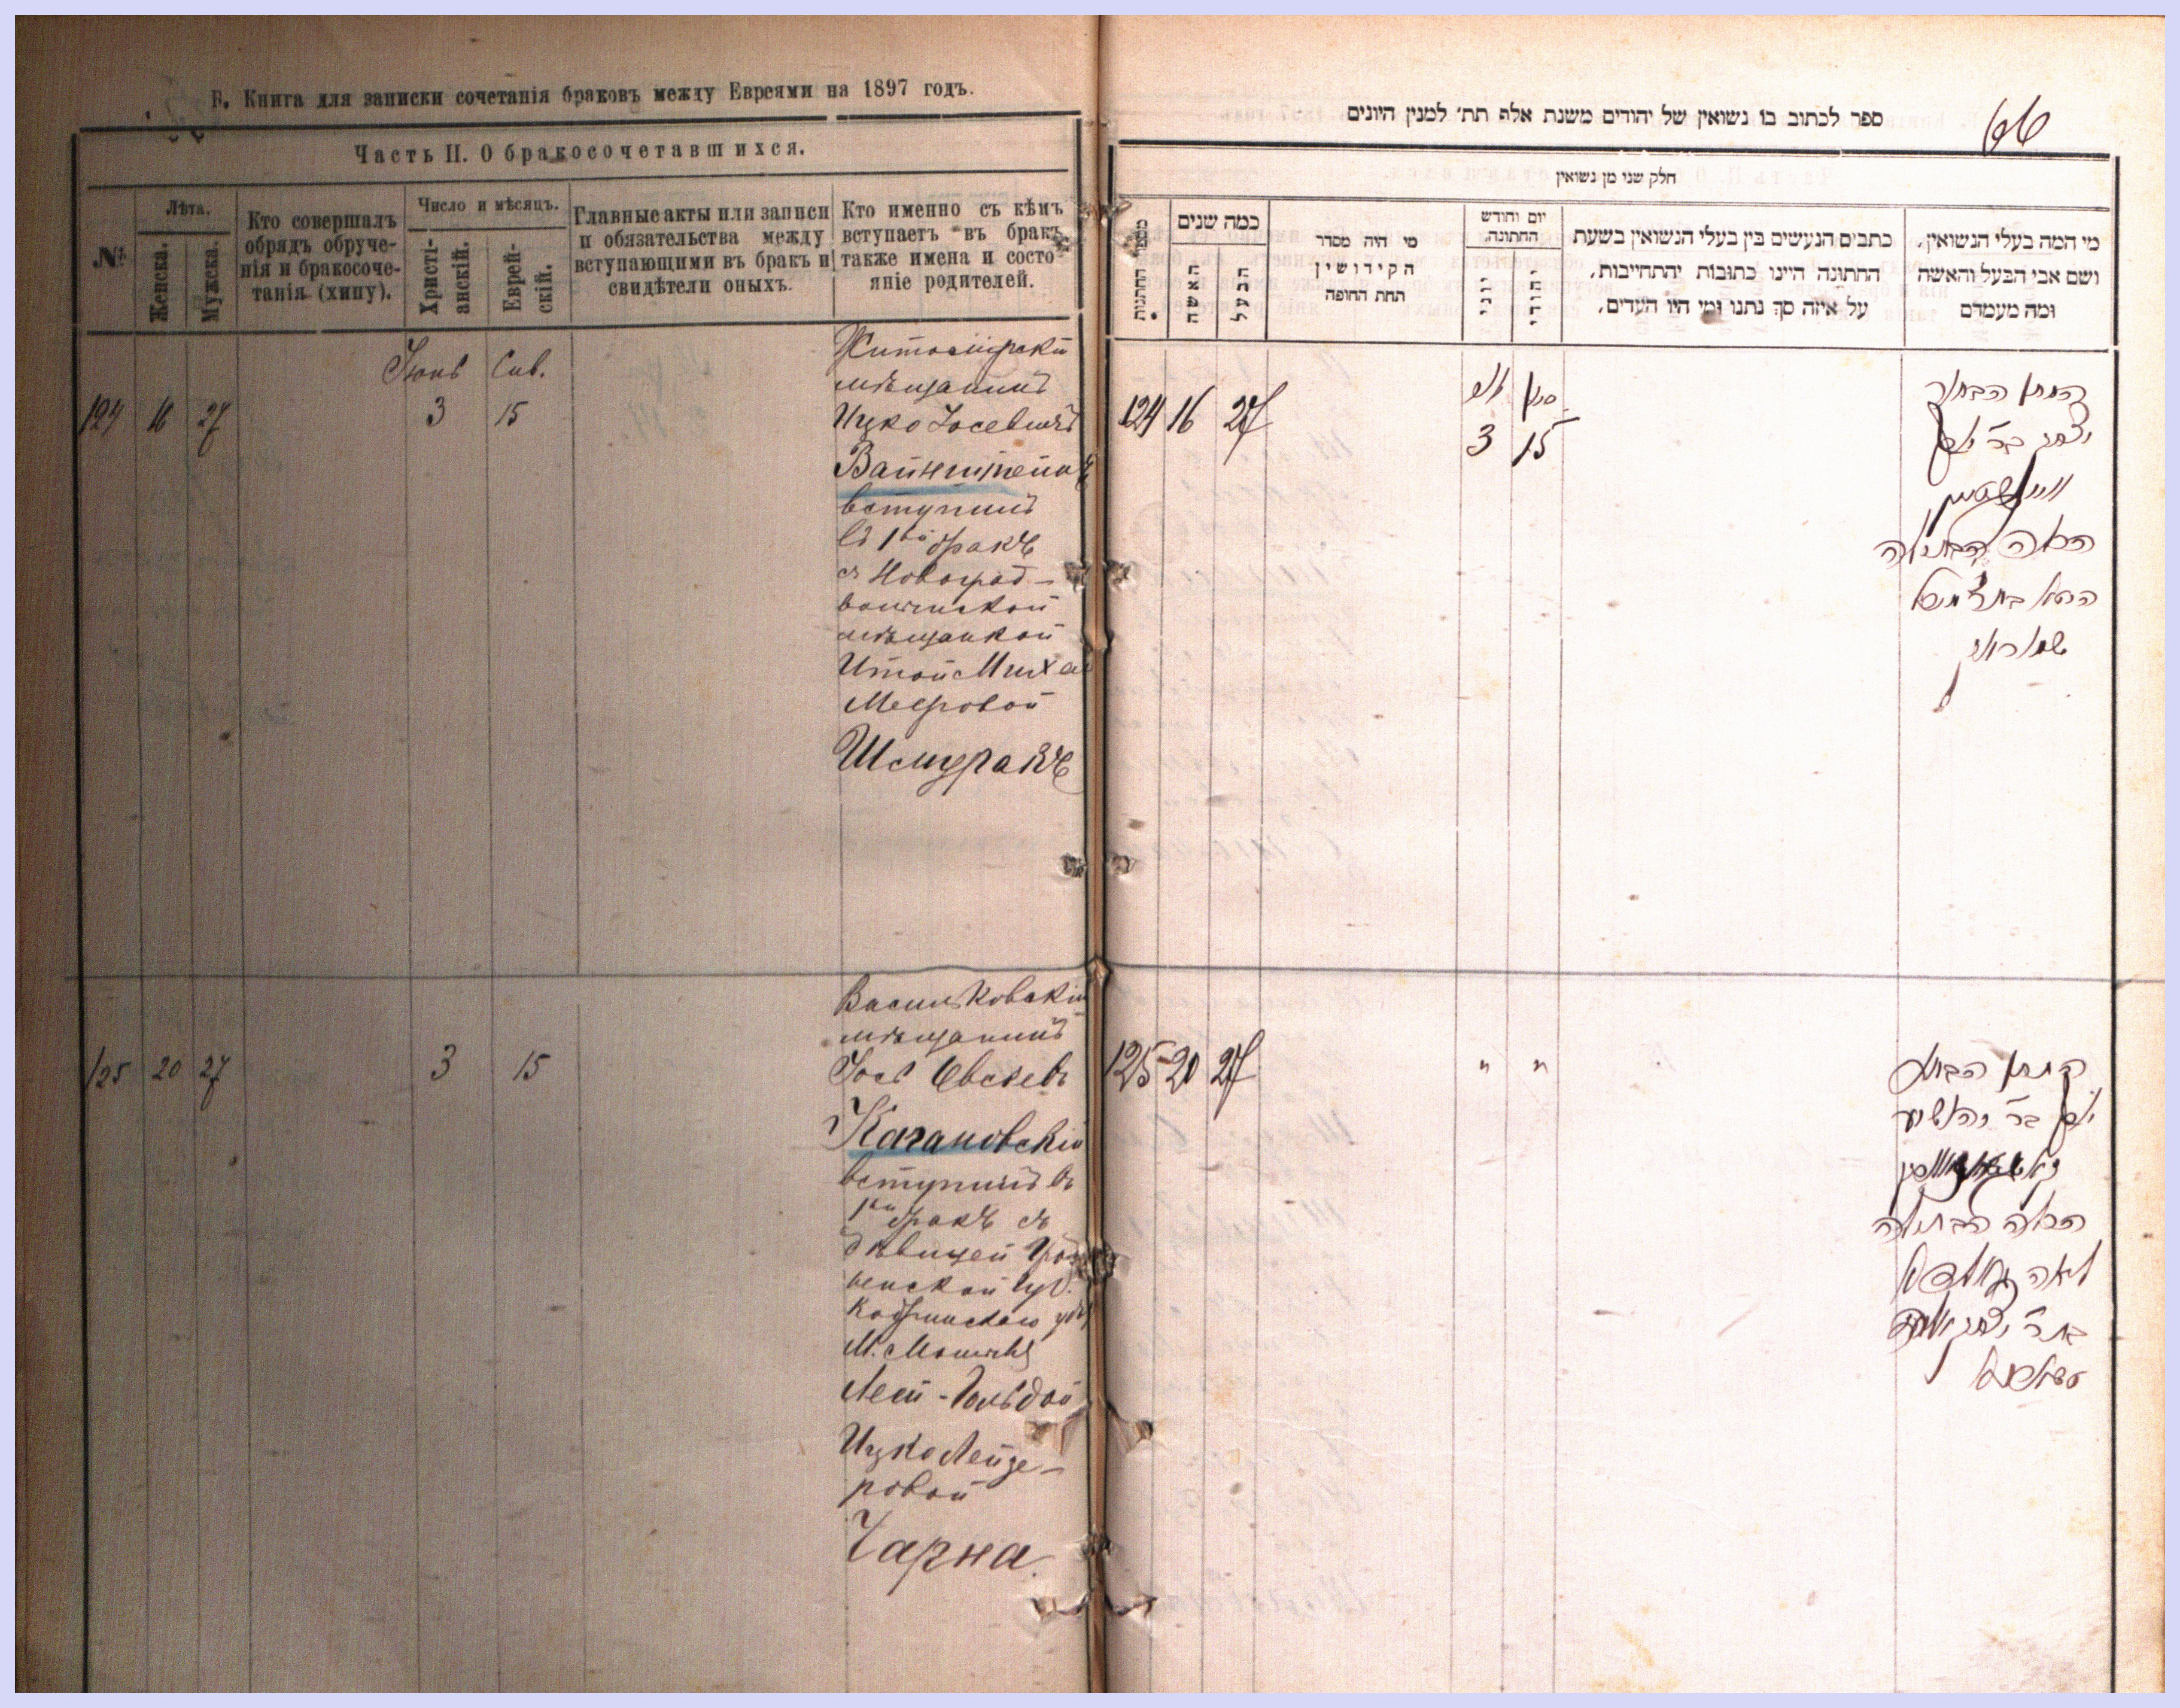 Б. Книга для записки сочетанія браковъ между Евреями на 1897 годъ.
Часть II. О бракосочетавшихся.
№
Лѣта.
Женска.
Мужска.
Кто совершалъ
обрядъ обруче-
нія и бракосоче-
танія (хипу).
Число и мѣсяцъ.
Христі-
анскій.
Еврей-
скій.
Главные акты или записи
и обязательства между
вступающими въ бракъ и
свидѣтели оныхъ.
Кто именно съ кѣмъ
вступаетъ въ бракъ
также имена и состо
яніе родителей.
Іюнь Сив.
124 16 27 3 15
Житомірскій
мѣщанинъ
Ицко Іосевичъ
Вайнштейнъ
вступилъ
въ 1ый бракъ
съ Новоград-
волынской
мѣщанкой
Итой Миха
Мееровой
Шмуракъ
125 20 27 3 15
Васильковскій
мѣщанинъ
Іось Овсеевъ
Кагановскій
вступилъ въ
1ый бракъ съ
дѣвицей Грод
ненской губ.
Кобринскаго
М.
Леей-Гольдой
Ицко Лейзе-
ровой
Чарна.
ספר לכתוב בו נשואין של יהודים משנת אלף תת׳ למנין היונים
66
חלק שני מן נשואין
מספר החתנות
כמה שנים
האשה
הבעל
מי היה מסדר
הקידושין
תחת החופה
יום וחודש
החתונה.
יוני
יהודי
כתבים הנעשים בין בעלי הנשואין בשעת
החתונה היינו כתובות יהתחייבות,
על איזה סך נתנו ומי היו העדים,
מי המה בעלי הנשואין,
ושם אבי הבעל והאשה
ומה מעמדם
יוני סיון
124 16 27 3 15
החתן הבחור
יצחק בר יוסף
וויינשטיין
הכלה הבתולה
125 20 27 " "
החתן הבחור
יוסף בר יהושע
הכלה הבתולה